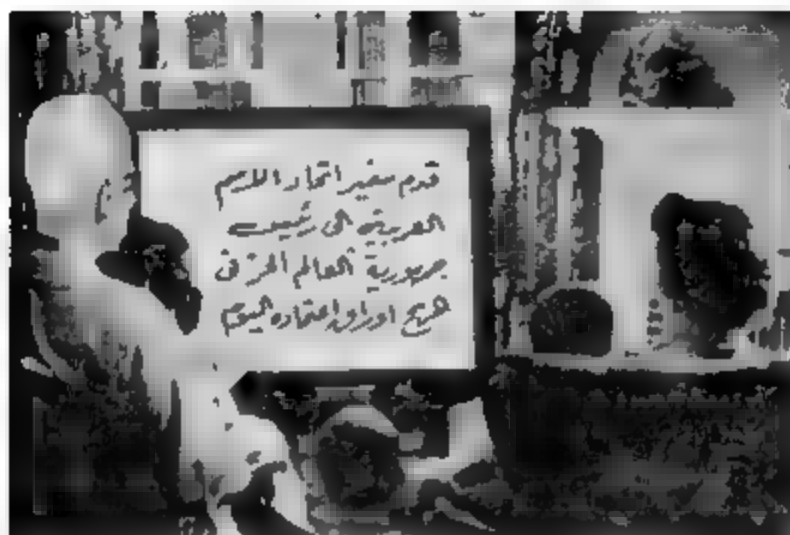 قدم سفير اتحاد الامم
العربية الى رئيس
جمهورية العالم الحر في
اوراق اعتماده اليوم